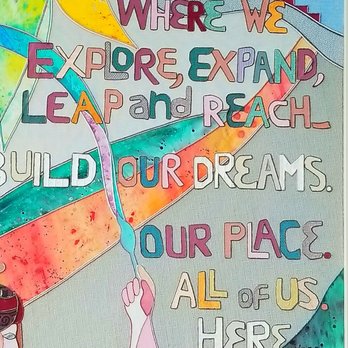 WHERE WE
EXPLORE, EXPAND,
LEAP and REACH_
BUILD OUR DREAMS.
OUR PLACE.
ALL OF US.
HERE